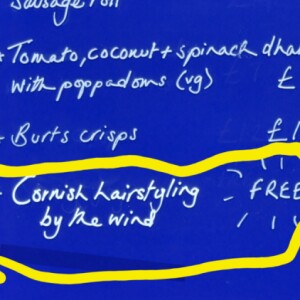 Sausage roll
+ Tomato, coconut + spinach dha
with poppadoms (vg) £
+ Burts crisps £1
+ Cornish hairstyling - FREE
by the wind